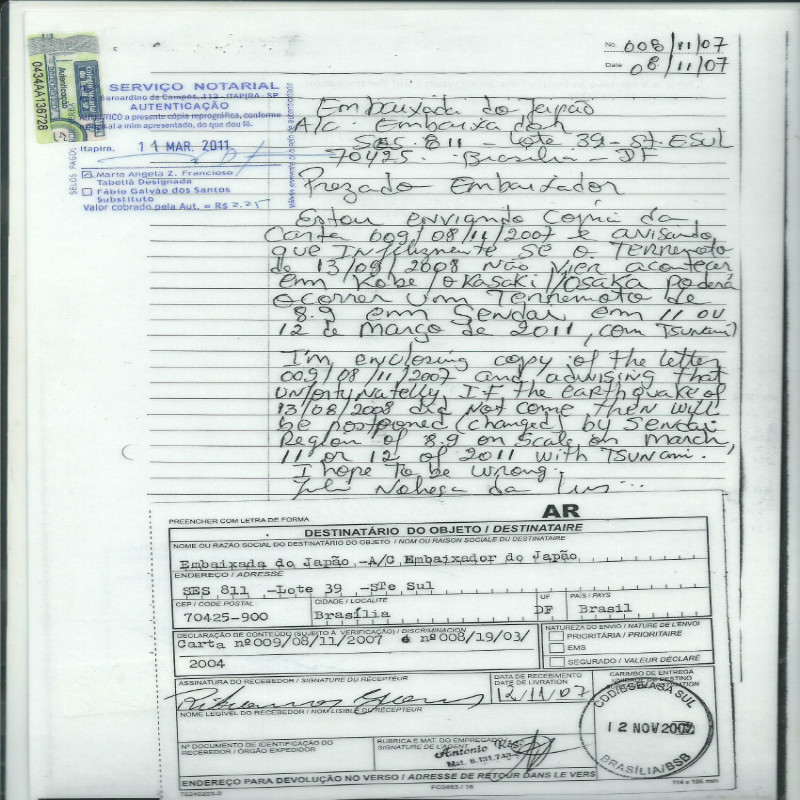 No. 008/11/07
Date 08/11/07
0434AA136728
Autenticação
SERVIÇO NOTARIAL
Bernardino de Campos, 113 - ITAPIRA - SP
AUTENTICAÇÃO
AUTENTICO a presente cópia reprográfica, conforme
original a mim apresentado, do que dou fé.
Itapira, 11 MAR. 2011
SELOS PAGOS
Marta Angela Z. Francioso
Tabeliã Designada
Fábio Galvão dos Santos
Substituto
Valor cobrado pela Aut. = R$ 2.25
Embaixada do Japão
A/c. Embaixador
SES. 811 - Lote 39 - St. ESUL
70425. Brasília - DF
Prezado Embaixador
Estou enviando Copia da
Carta 009/08/11/2007 e avisando
que Infelizmente se o Terremoto
de 13/09/2008 não vier acontecer
em Kobe/Okasaki/Osaka poderá
ocorrer um Terremoto de
8.9 em Sendai em 11 ou
12 de Março de 2011, (com Tsunami)
I'm enclosing copy of the letter
009/08/11/2007 and advising that
unfortunatelly If the earthquake of
13/08/2008 did not come then will
be postponed (changed) by Sendai
Region of 8.9 on scale on March,
11 or 12 of 2011 with Tsunami.
I hope to be wrong.
da
AR
PREENCHER COM LETRA DE FORMA
DESTINATÁRIO DO OBJETO / DESTINATAIRE
NOME OU RAZÃO SOCIAL DO DESTINATÁRIO DO OBJETO / NOM OU RAISON SOCIALE DU DESTINATAIRE
Embaixada do Japão -A/C Embaixador do Japão
ENDEREÇO / ADRESSE
SES 811 -Lote 39 -STe Sul
CEP / CODE POSTAL
CIDADE / LOCALITÉ
UF
PAÍS / PAYS
70425-900
Brasília
DF
Brasil
DECLARAÇÃO DE CONTEÚDO (SUJEITO À VERIFICAÇÃO) / DISCRIMINACION
NATUREZA DO ENVIO / NATURE DE L'ENVOI
Carta nº009/08/11/2007 é nº008/19/03/
2004
PRIORITÁRIA / PRIORITAIRE
EMS
SEGURADO / VALEUR DÉCLARÉ
ASSINATURA DO RECEBEDOR / SIGNATURE DU RÉCEPTEUR
DATA DE RECEBIMENTO
DATE DE LIVRATION
12/11/07
CARIMBO DE ENTREGA
UNIDADE DE DESTINO
NOME LEGÍVEL DO RECEBEDOR / NOM LISIBLE DU RÉCEPTEUR
12 NOV 2007
BRASÍLIA/BSB
Nº DOCUMENTO DE IDENTIFICAÇÃO DO
RECEBEDOR / ÓRGÃO EXPEDIDOR
RUBRICA E MAT. DO EMPREGADO /
SIGNATURE DE L'AGENT
Antonio
ENDEREÇO PARA DEVOLUÇÃO NO VERSO / ADRESSE DE RETOUR DANS LE VERS
FC0463 / 16
114 x 186 mm